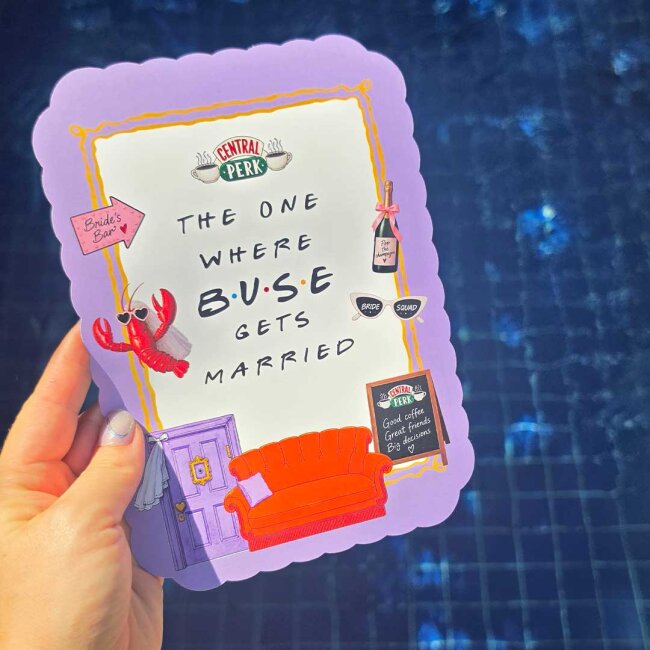 CENTRAL
PERK
THE ONE
WHERE
B·U·S·E
GETS
MARRIED
Bride's
Bar
Pop
the
champagne
BRIDE SQUAD
CENTRAL
PERK
Good coffee
Great friends
Big decisions